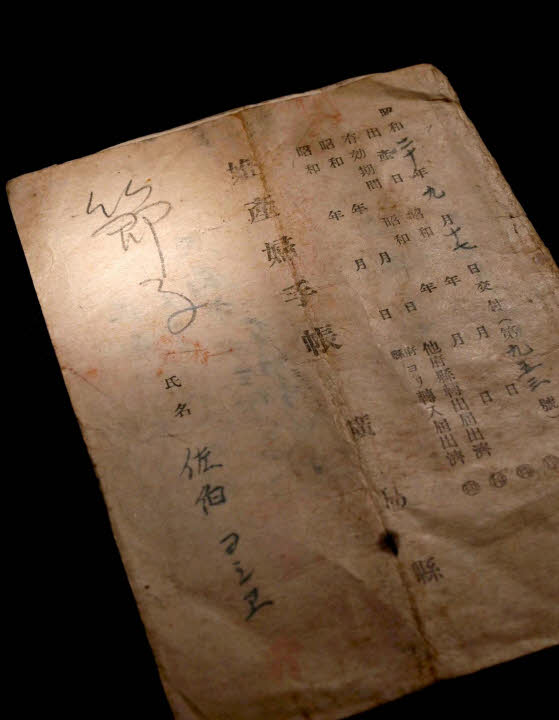 昭和二十年九月十七日交付(第九五三號)
出産日 昭和 年 月 日
他府縣轉出届出濟
有効期間
昭和 年 月 日
府縣ヨリ轉入届出濟
昭和 年 月 日
妊産婦手帳
廣島縣
節子
氏名
佐伯ヨシヱ